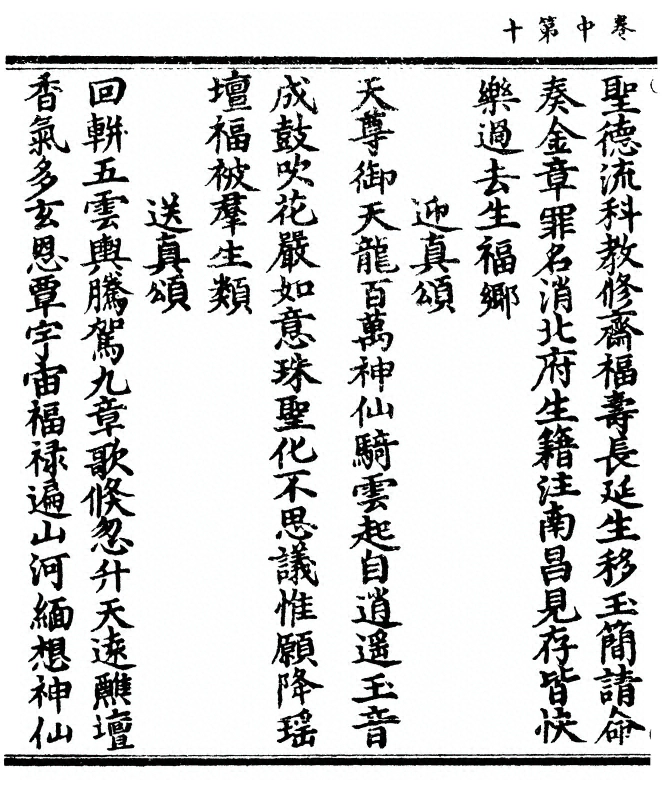 卷中第十
聖德流科教修齋福壽長延生移玉簡請命
奏金章罪名消北府生籍注南昌見存皆快
樂過去生福鄉
迎真頌
天尊御天龍百萬神仙騎雲起自逍遥玉音
成鼓吹花嚴如意珠聖化不思議惟願降瑶
壇福被羣生類
送真頌
回軿五雲輿騰駕九章歌倏忽升天遠醮壇
香氣多玄恩覃宇宙福禄遍山河緬想神仙